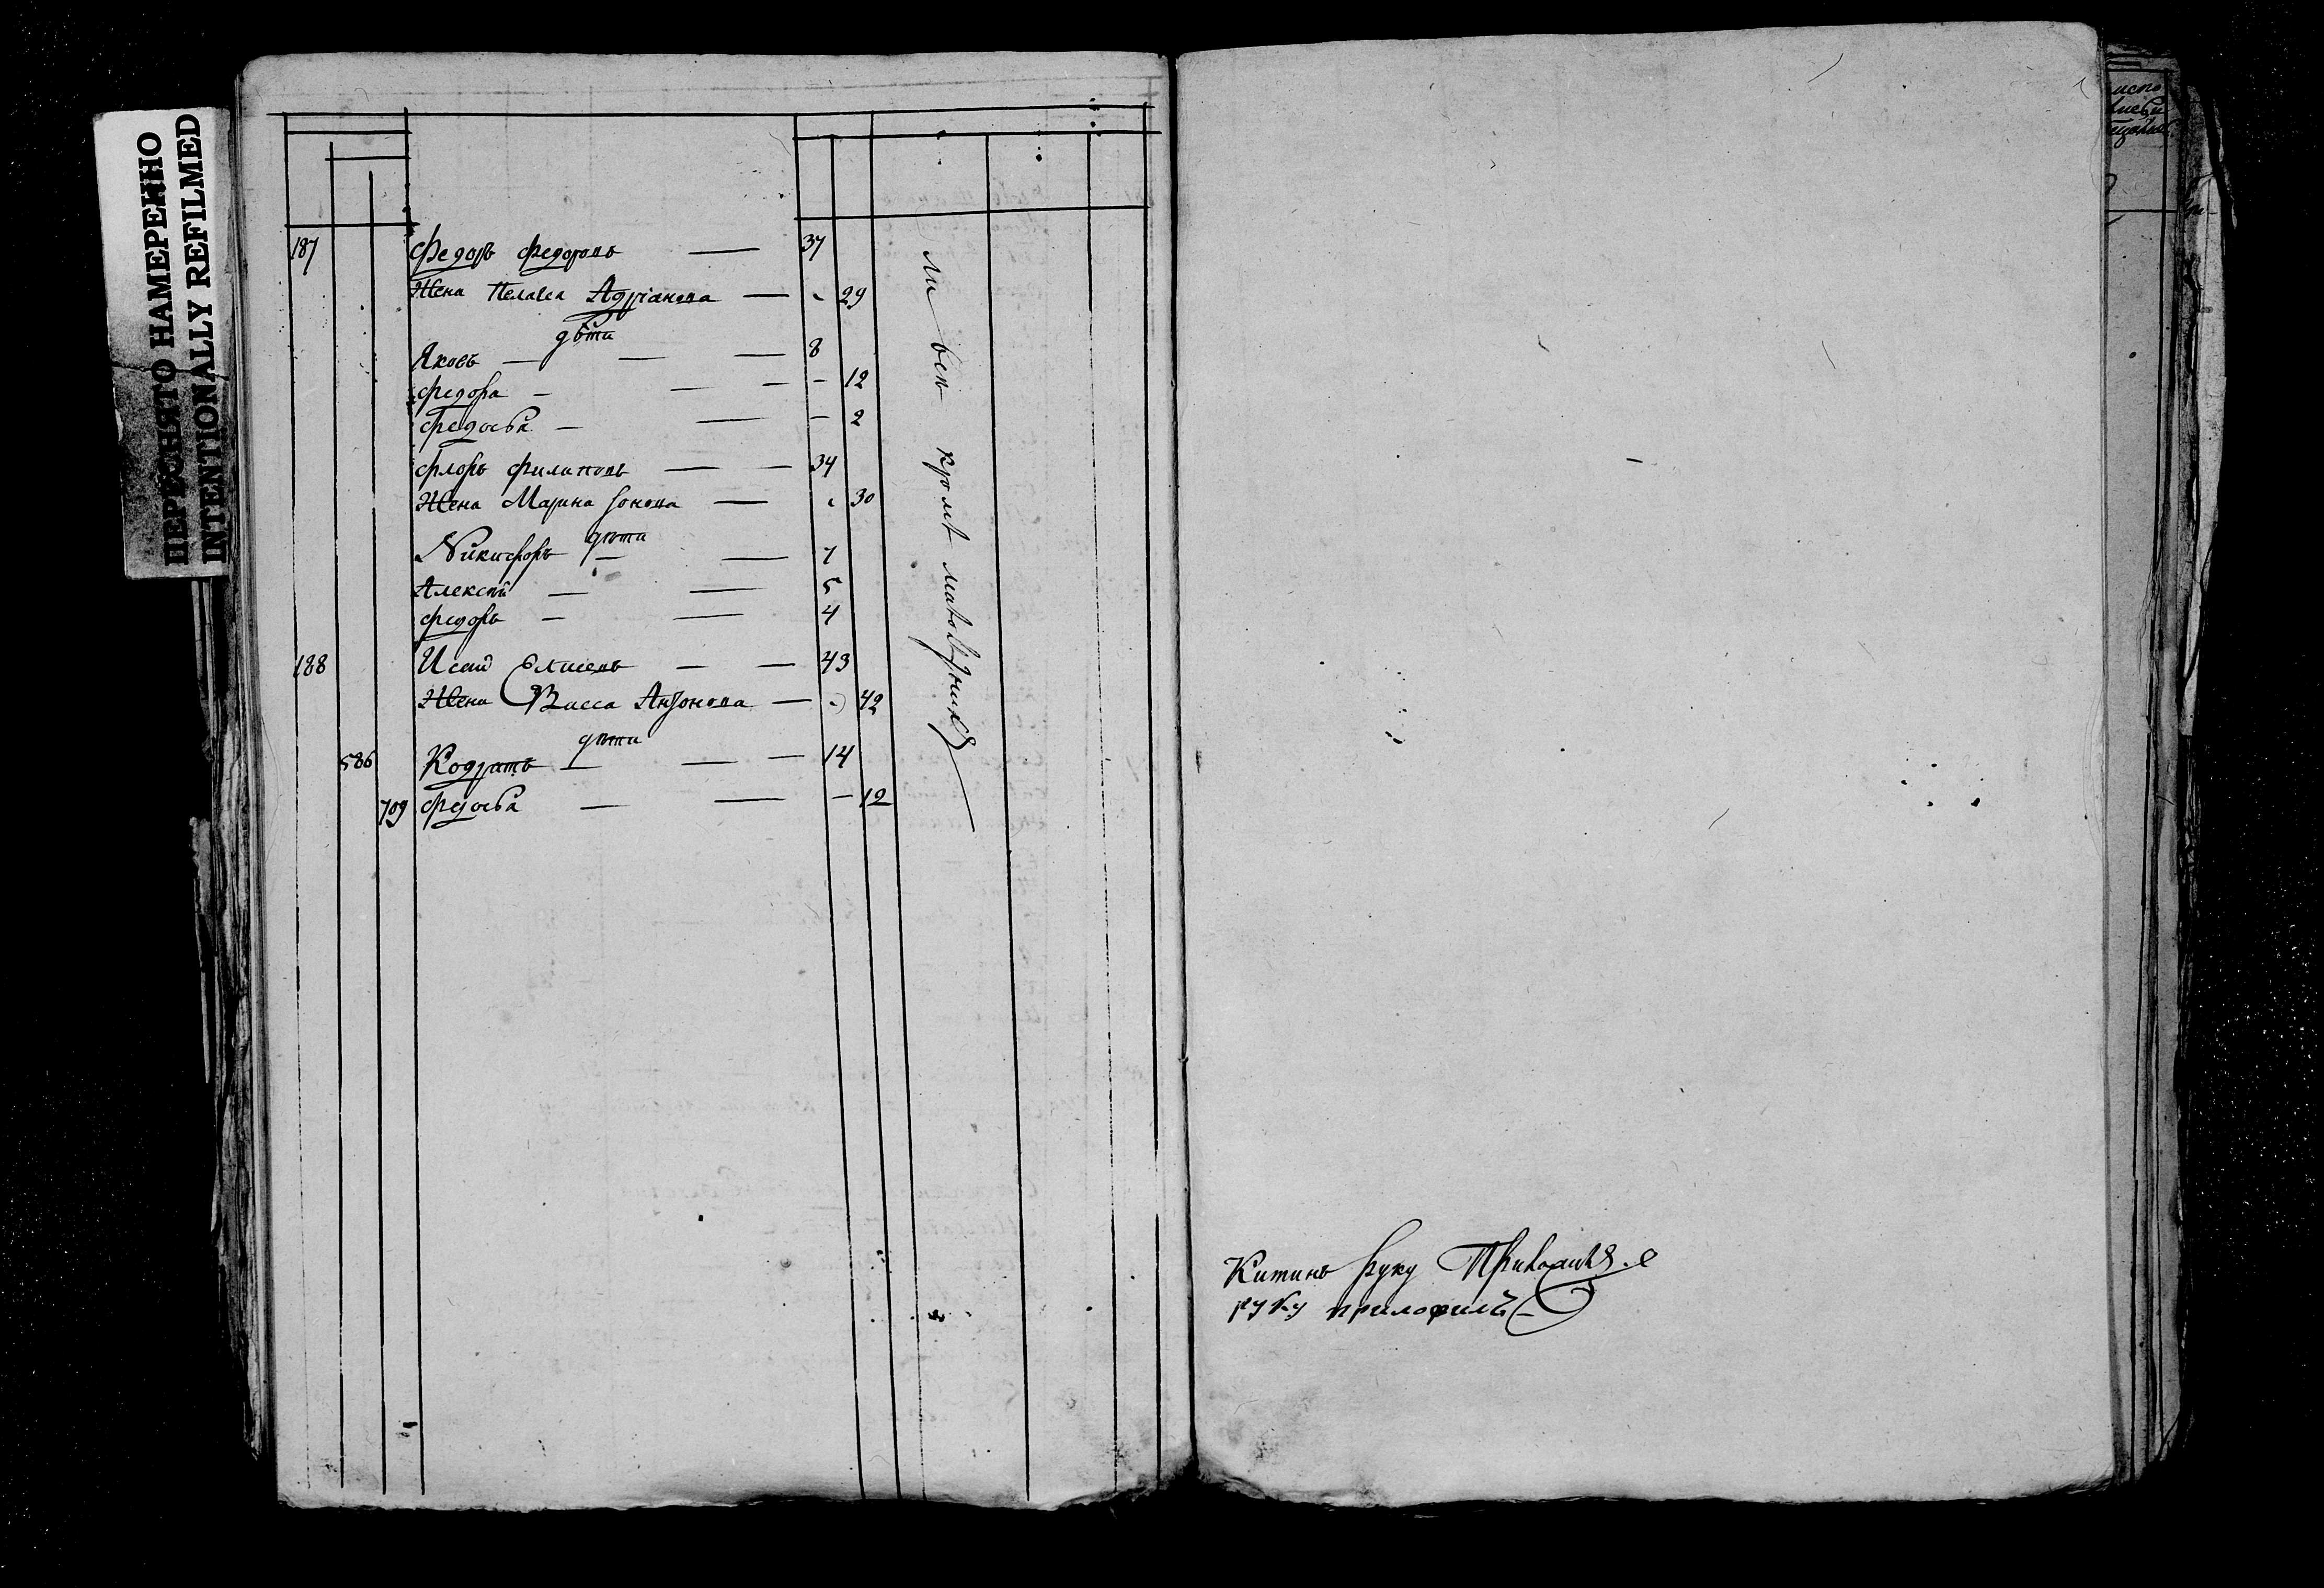 ПЕРЕСНЯТО НАМЕРЕННО
INTENTIONALLY REFILMED
187 Федоръ Федоровъ — 37
Жена Пелагея Адріанова — 29
дѣти
Яковъ — — — 8
Федора — — — 12
Федосья — — — 2
Флоръ Филиповъ — — 34
Жена Марина — 30
дѣти
Никифоръ — — 7
Алексѣй — — 5
Федоръ — — 4
188 Исай Елисеевъ — — 43
Жена Васса Антонова — 42
дѣти
586 Кодратъ — — — 14
709 Федосья — — — 12
ли всѣ кромѣ малолѣтныхъ
руку
руку приложилъ